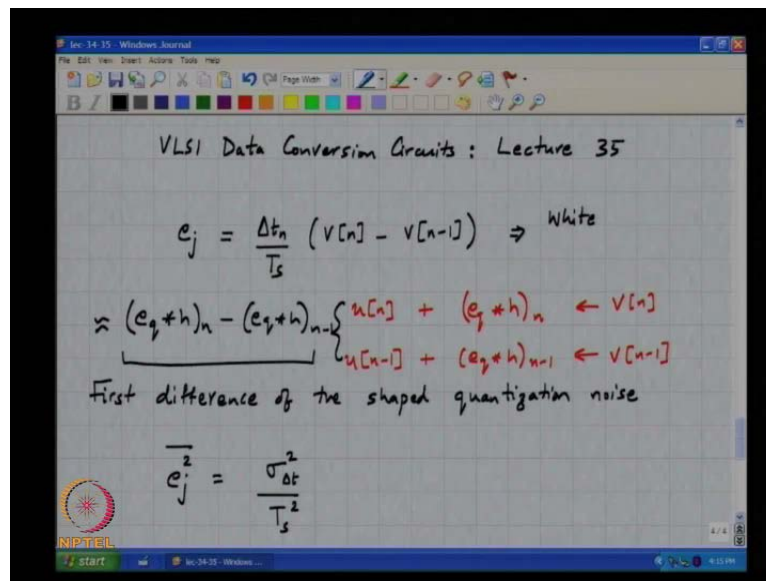 lec-34-35 - Windows Journal
File Edit View Insert Actions Tools Help
Page Width
B I
VLSI Data Conversion Circuits : Lecture 35
e_j = Δt_n / T_s (V[n] - V[n-1]) ⇒ White
≈ (e_q * h)_n - (e_q * h)_{n-1} { u[n] + (e_q * h)_n ← V[n]
u[n-1] + (e_q * h)_{n-1} ← V[n-1]
First difference of the shaped quantization noise
\overline{e_j^2} = σ_{Δt}^2 / T_s^2
NPTEL
4/4
start
lec-34-35 - Windows ...
4:15 PM